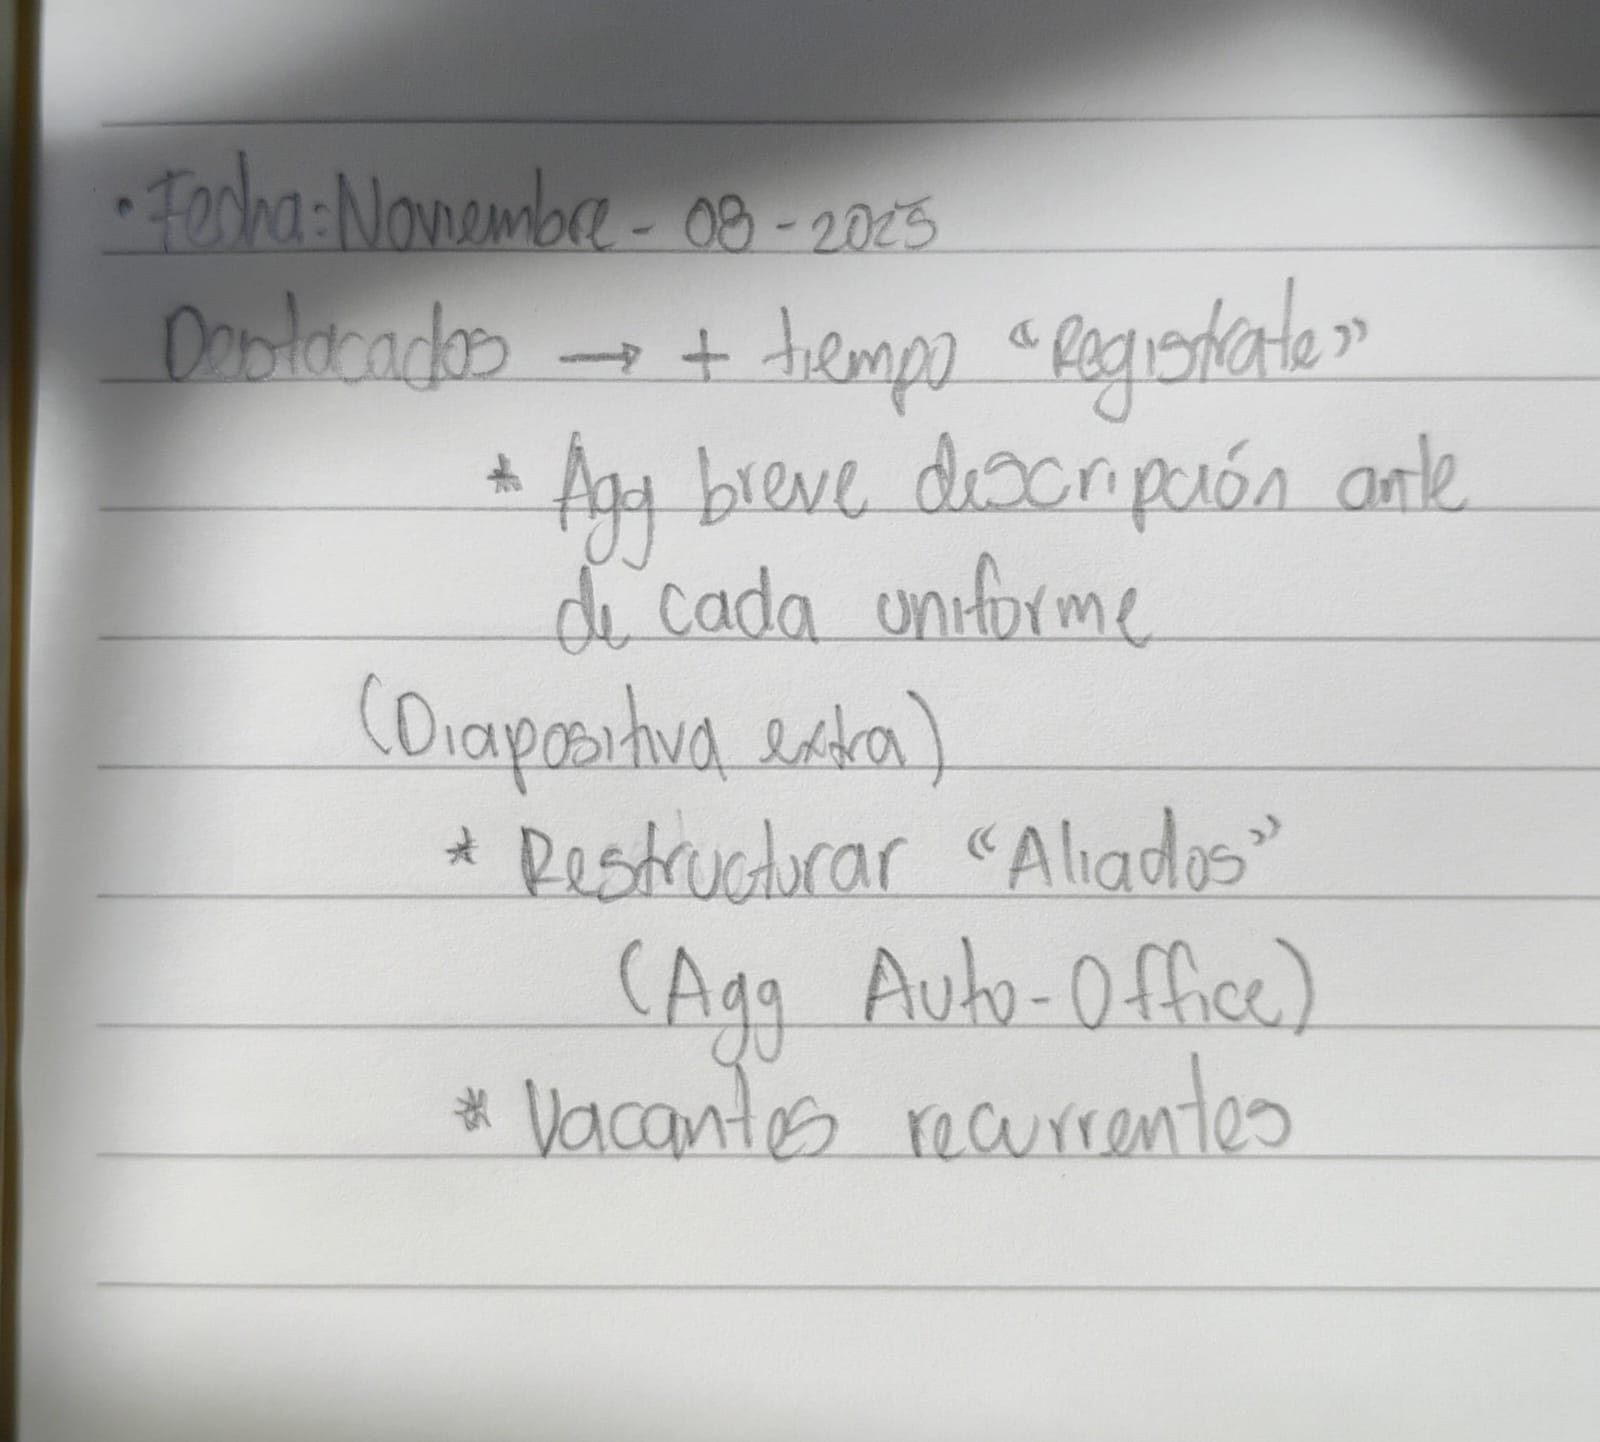 • Fecha: Noviembre - 08 - 2025
Destacados → + tiempo “Registrate”
* Agg breve descripción ante
de cada uniforme
(Diapositiva extra)
* Restructurar “Aliados”
(Agg Auto-Office)
* Vacantes recurrentes